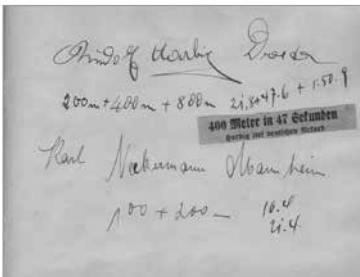 Rudolf Harbig Dresden
200m + 400m + 800m 21,8+47.6 + 1.50.9
400 Meter in 47 Sekunden
Harbig lief deutschen Rekord
Karl Neckermann Mannheim
100 + 200m 10.4
21.4